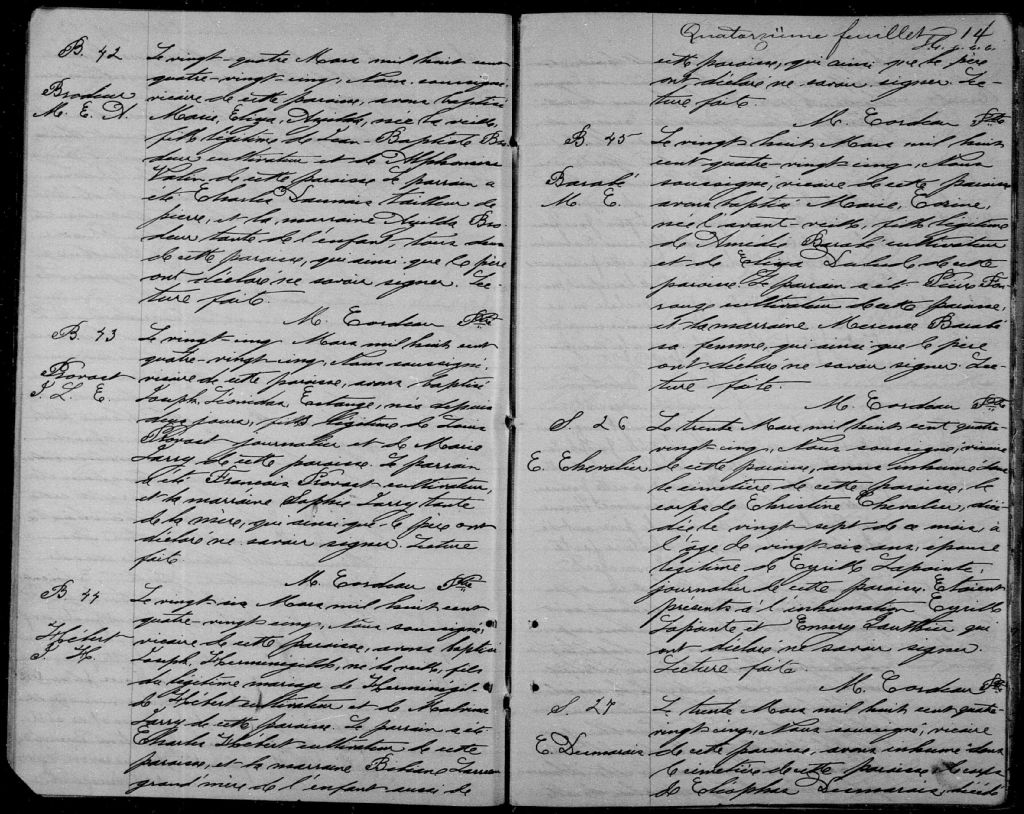 B. 42
Brodeur
M. E. A.
Le vingt-quatre Mars mil huit cent
quatre-vingt-cinq, Nous soussigné,
vicaire de cette paroisse, avons baptisé
Marie, Eliza, Azilda, née la veille,
fille légitime de Jean-Baptiste Bro-
deur cultivateur et de Alphonsine
de cette paroisse. Le parrain a
été Charles Daunais tailleur de
pierre, et la marraine Azilda Bro-
deur tante de l'enfant, tous deux
de cette paroisse, qui ainsi que le père
ont déclaré ne savoir signer. Lec-
ture faite.
M. Cordeau Ptre
B. 43
Provost
J. L. E.
Le vingt-cinq Mars mil huit cent
quatre-vingt-cinq, Nous soussigné,
vicaire de cette paroisse, avons baptisé
Joseph, Léonidas, né depuis
deux jours, fils légitime de Louis
Provost journalier et de Marie
Larry de cette paroisse. Le parrain
a été François Provost cultivateur,
et la marraine Sophie Larry, tante
de la mère, qui ainsi que le père ont
déclaré ne savoir signer. Lecture
faite.
M. Cordeau Ptre
B. 44
Hébert
J. H.
Le vingt-six Mars mil huit cent
quatre-vingt-cinq, Nous soussigné,
vicaire de cette paroisse, avons baptisé
Joseph, Herminégilde, né la veille, fils
du légitime mariage de Herminégil-
de Hébert cultivateur et de
Larry de cette paroisse. Le parrain a été
Charles Hébert cultivateur de cette
paroisse, et la marraine
grand'mère de l'enfant aussi de
Quatorzième feuillet 14
cette paroisse, qui ainsi que le père
ont déclaré ne savoir signer. Lec-
ture faite.
M. Cordeau Ptre
B. 45
Barabé
M. E.
Le vingt huit Mars mil huit
cent quatre-vingt-cinq, Nous
soussigné, vicaire de cette paroisse
avons baptisé Marie,
née l'avant-veille, fille légitime
de Amédée Barabé cultivateur
et de Eliza de cette
paroisse. Le parrain a été Pierre
cultivateur de cette paroisse,
et la marraine Barabé
sa femme, qui ainsi que le père
ont déclaré ne savoir signer. Lec-
ture faite.
M. Cordeau Ptre
S. 26
C. Chevalier
Le trente Mars mil huit cent quatre-
vingt-cinq, Nous soussigné, vicaire
de cette paroisse, avons inhumé dans
le cimetière de cette paroisse, le
corps de Christine Chevalier, décé-
dée, le vingt sept de ce mois, à
l'âge de vingt six ans, épouse
légitime de Cyrille Lapointe,
journalier de cette paroisse. Etaient
présents à l'inhumation Cyrille
Lapointe et Emery Gauthier qui
ont déclaré ne savoir signer.
Lecture faite.
M. Cordeau Ptre
S. 27
C. Desmarais
Le trente Mars mil huit cent quatre-
vingt-cinq, Nous soussigné, vicaire
de cette paroisse, avons inhumé dans
le cimetière de cette paroisse, le corps
de Cléophée Desmarais, décédé